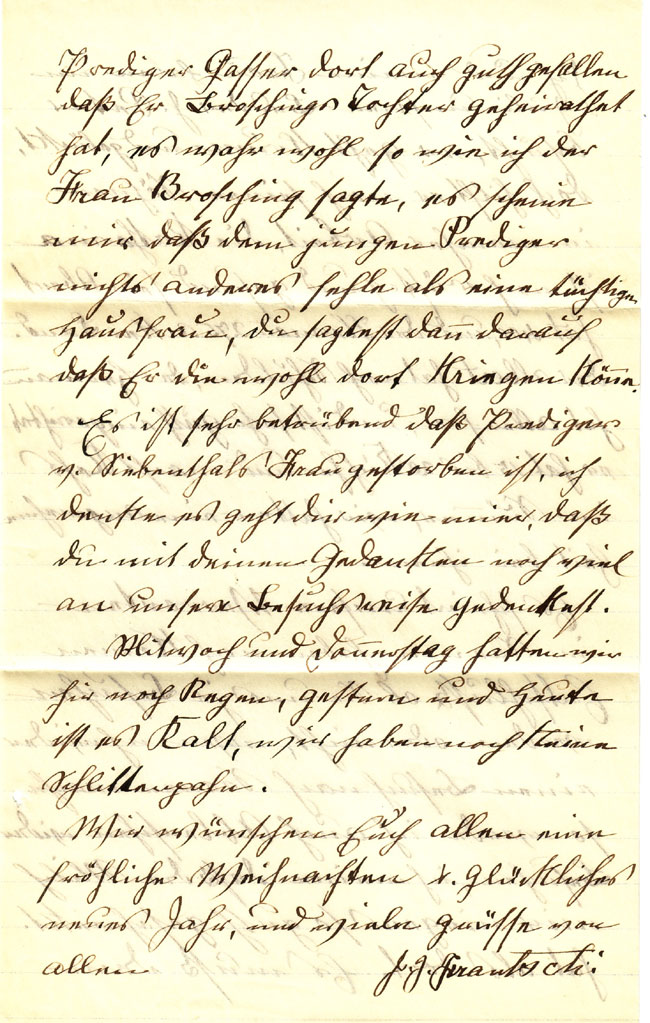 Prediger Gasser dort auch guth gefallen
daß Er Broschings Tochter geheirathet
hat, es wahr wohl so wie ich der
Frau Brosching sagte, es scheine
mir daß dem jungen Prediger
nichts anderes fehle als eine tüchtige
Hausfrau, du sagtest dann darauf
daß Er die wohl dort Kriegen Könne.
Es ist sehr betrübend daß Prediger
v. Siebenthals Frau gestorben ist, ich
denke es geht dir wie mier, daß
du mit deinen Gedanken noch viel
an unsere Besuchsreise gedenkest.
Mitwoch und Donnerstag hatten wir
hir noch Regen, gestern und Heute
ist es Kalt, wir haben noch Keine
Schlittenpahn.
Wir wünschen Euch allen eine
fröhliche Weihnachten u. Glückliches
neues Jahr, und viele grüsse von
allen J. J. Frautschi.